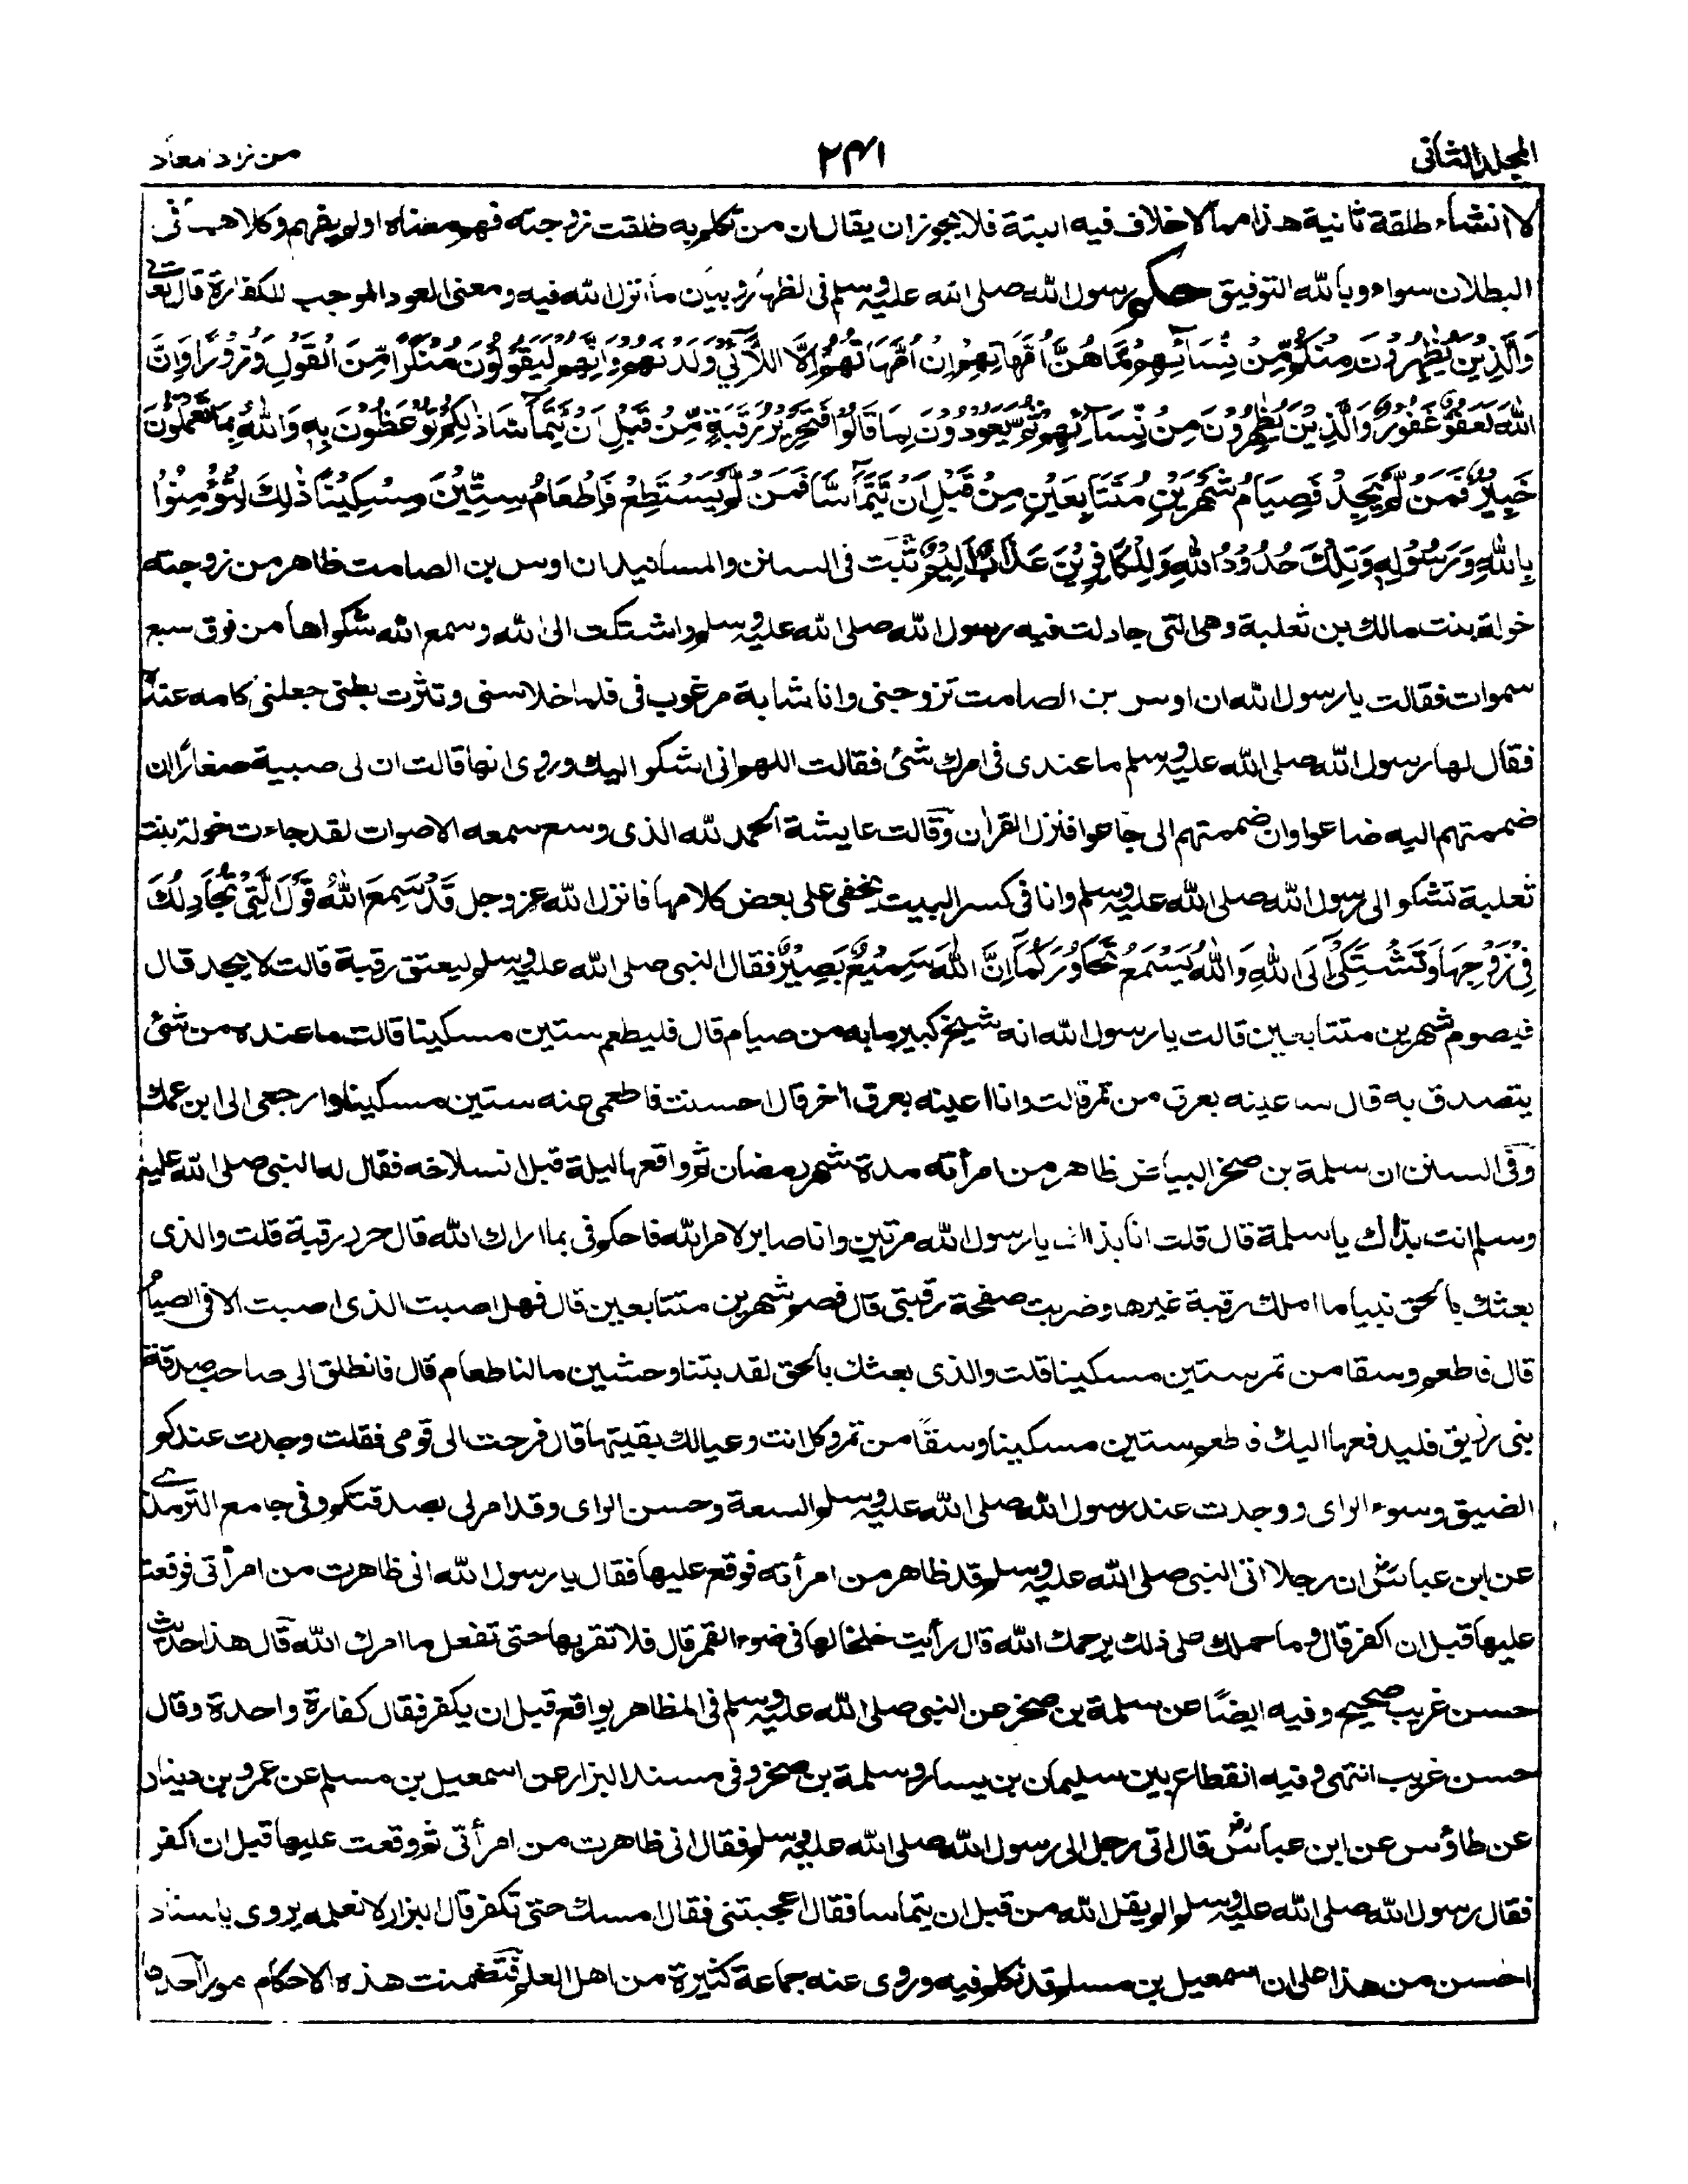 المجلد الثانی
۲۴۱
من زاد معاد
لا انشاء طلقة ثانية هذا مما لا خلاف فيه البتة فلا يجوز ان يقال ان من تكلم به طلقت زوجته فهم معناه او لم يفهم وكلاهما فی
البطلان سواء وبالله التوفيق حكم رسول الله صلى الله عليه وسلم فی الظهار وبيان ما انزل الله فيه ومعنى العود الموجب للكفارة قال تعالے
وَالَّذِينَ يُظَهِرُونَ مِنكُم مِّن نِّسَائِهِم مَّا هُنَّ أُمَّهَاتِهِم اِنْ أُمَّهَاتُهُمْ إِلَّا اللَّائِي وَلَدْنَهُمْ وَإِنَّهُمْ لَيَقُولُونَ مُنكَرًا مِّنَ الْقَوْلِ وَزُورًا وَإِنَّ
اللهَ لَعَفُوٌّ غَفُورٌ وَالَّذِينَ يُظَهِرُونَ مِنْ نِّسَائِهِمْ ثُمَّ يَعُودُونَ لِمَا قَالُوا فَتَحْرِيرُ رَقَبَةٍ مِّنْ قَبْلِ اَنْ يَّتَمَاسَّا ذٰلِكُمْ تُوعَظُونَ بِهِ وَاللهُ بِمَا تَعْمَلُونَ
خَبِيرٌ فَمَنْ لَّمْ يَجِدْ فَصِيَامُ شَهْرَيْنِ مُتَتَابِعَيْنِ مِنْ قَبْلِ اَنْ يَّتَمَاسَّا فَمَنْ لَّمْ يَسْتَطِعْ فَاِطْعَامُ سِتِّيْنَ مِسْكِيْنًا ذٰلِكَ لِتُؤْمِنُوْا
بِاللهِ وَرَسُوْلِهِ وَتِلْكَ حُدُوْدُ اللهِ وَلِلْكَافِرِيْنَ عَذَابٌ اَلِيْمٌ ثبت فی السنن والمسانيد ان اوس بن الصامت ظاهر من زوجته
خولة بنت مالك بن ثعلبة وهی التی جادلت فيه رسول الله صلى الله عليه وسلم واشتكت الى الله وسمع الله شكواها من فوق سبع
سموات فقالت يا رسول الله ان اوس بن الصامت تزوجنی وانا شابة مرغوب فی فلما خلا سنی ونثرت بطنی جعلنی كامه عنده
فقال لها رسول الله صلى الله عليه وسلم ما عندی فی امرك شئ فقالت اللهم انی اشكو اليك وروی انها قالت ان لی صبية صغارا ان
ضممتهم اليه ضاعوا وان ضممتهم الی جاعوا فنزل القران وقالت عايشة الحمد لله الذی وسع سمعه الاصوات لقد جاءت خولة بنت
ثعلبة تشكو الى رسول الله صلى الله عليه وسلم وانا فی كسر البيت يخفی علی بعض كلامها فانزل الله عز وجل قَدْ سَمِعَ اللهُ قَوْلَ الَّتِیْ تُجَادِلُكَ
فِیْ زَوْجِهَا وَتَشْتَكِیْ اِلَی اللهِ وَاللهُ يَسْمَعُ تَحَاوُرَكُمَا اِنَّ اللهَ سَمِيْعٌ بَصِيْرٌ فقال النبی صلى الله عليه وسلم ليعتق رقبة قالت لا يجد قال
فيصوم شهرين متتابعين قالت يا رسول الله انه شيخ كبير ما به من صيام قال فليطعم ستين مسكينا قالت ما عنده من شئ
يتصدق به قال ساعينه بعرق من تمر قالت وانا اعينه بعرق اخر قال احسنت فاطعمی عنه ستين مسكينا وارجعی الی ابن عمك
وفی السنن ان سلمة بن صخر البياضی ظاهر من امرأته مدة شهر رمضان ثم واقعها ليلة قبل انسلاخه فقال له النبی صلى الله عليه
وسلم انت بذاك يا سلمة قال قلت انا بذاك يا رسول الله مرتين وانا صابر لامر الله فاحكم فی بما اراك الله قال حرر رقبة قلت والذی
بعثك بالحق نبيا ما املك رقبة غيرها وضربت صفحة رقبتی قال فصم شهرين متتابعين قال فهل اصبت الذی اصبت الا فی الصيام
قال فاطعم وسقا من تمر ستين مسكينا قلت والذی بعثك بالحق لقد بتنا وحشين ما لنا طعام قال فانطلق الی صاحب صدقة
بنی زريق فليدفعها اليك فاطعم ستين مسكينا وسقا من تمر وكل انت وعيالك بقيتها قال فرحت الی قومی فقلت وجدت عندكم
الضيق وسوء الرای ووجدت عند رسول الله صلى الله عليه وسلم السعة وحسن الرای وقد امر لی بصدقتكم وفی جامع الترمذے
عن ابن عباس ان رجلا اتی النبی صلى الله عليه وسلم قد ظاهر من امرأته فوقع عليها فقال يا رسول الله انی ظاهرت من امرأتی فوقعت
عليها قبل ان اكفر قال وما حملك علی ذلك يرحمك الله قال رأيت خلخالها فی ضوء القمر قال فلا تقربها حتی تفعل ما امرك الله قال هذا حديث
حسن غريب صحيح وفيه ايضًا عن سلمة بن صخر عن النبی صلى الله عليه وسلم فی المظاهر يواقع قبل ان يكفر فقال كفارة واحدة وقال
حسن غريب انتهی وفيه انقطاع بين سليمان بن يسار وسلمة بن صخر وفی مسند البزار عن اسمعيل بن مسلم عن عمرو بن دينار
عن طاؤس عن ابن عباس قال اتی رجل الی رسول الله صلى الله عليه وسلم فقال انی ظاهرت من امرأتی ثم وقعت عليها قبل ان اكفر
فقال رسول الله صلى الله عليه وسلم الم يقل الله من قبل ان يتماسا فقال اعجبتنی فقال امسك حتی تكفر قال البزار لا نعلمه يروی باسناد
احسن من هذا علی ان اسمعيل بن مسلم قد تكلم فيه وروی عنه جماعة كثيرة من اهل العلم فتضمنت هذه الاحكام امورا احدها